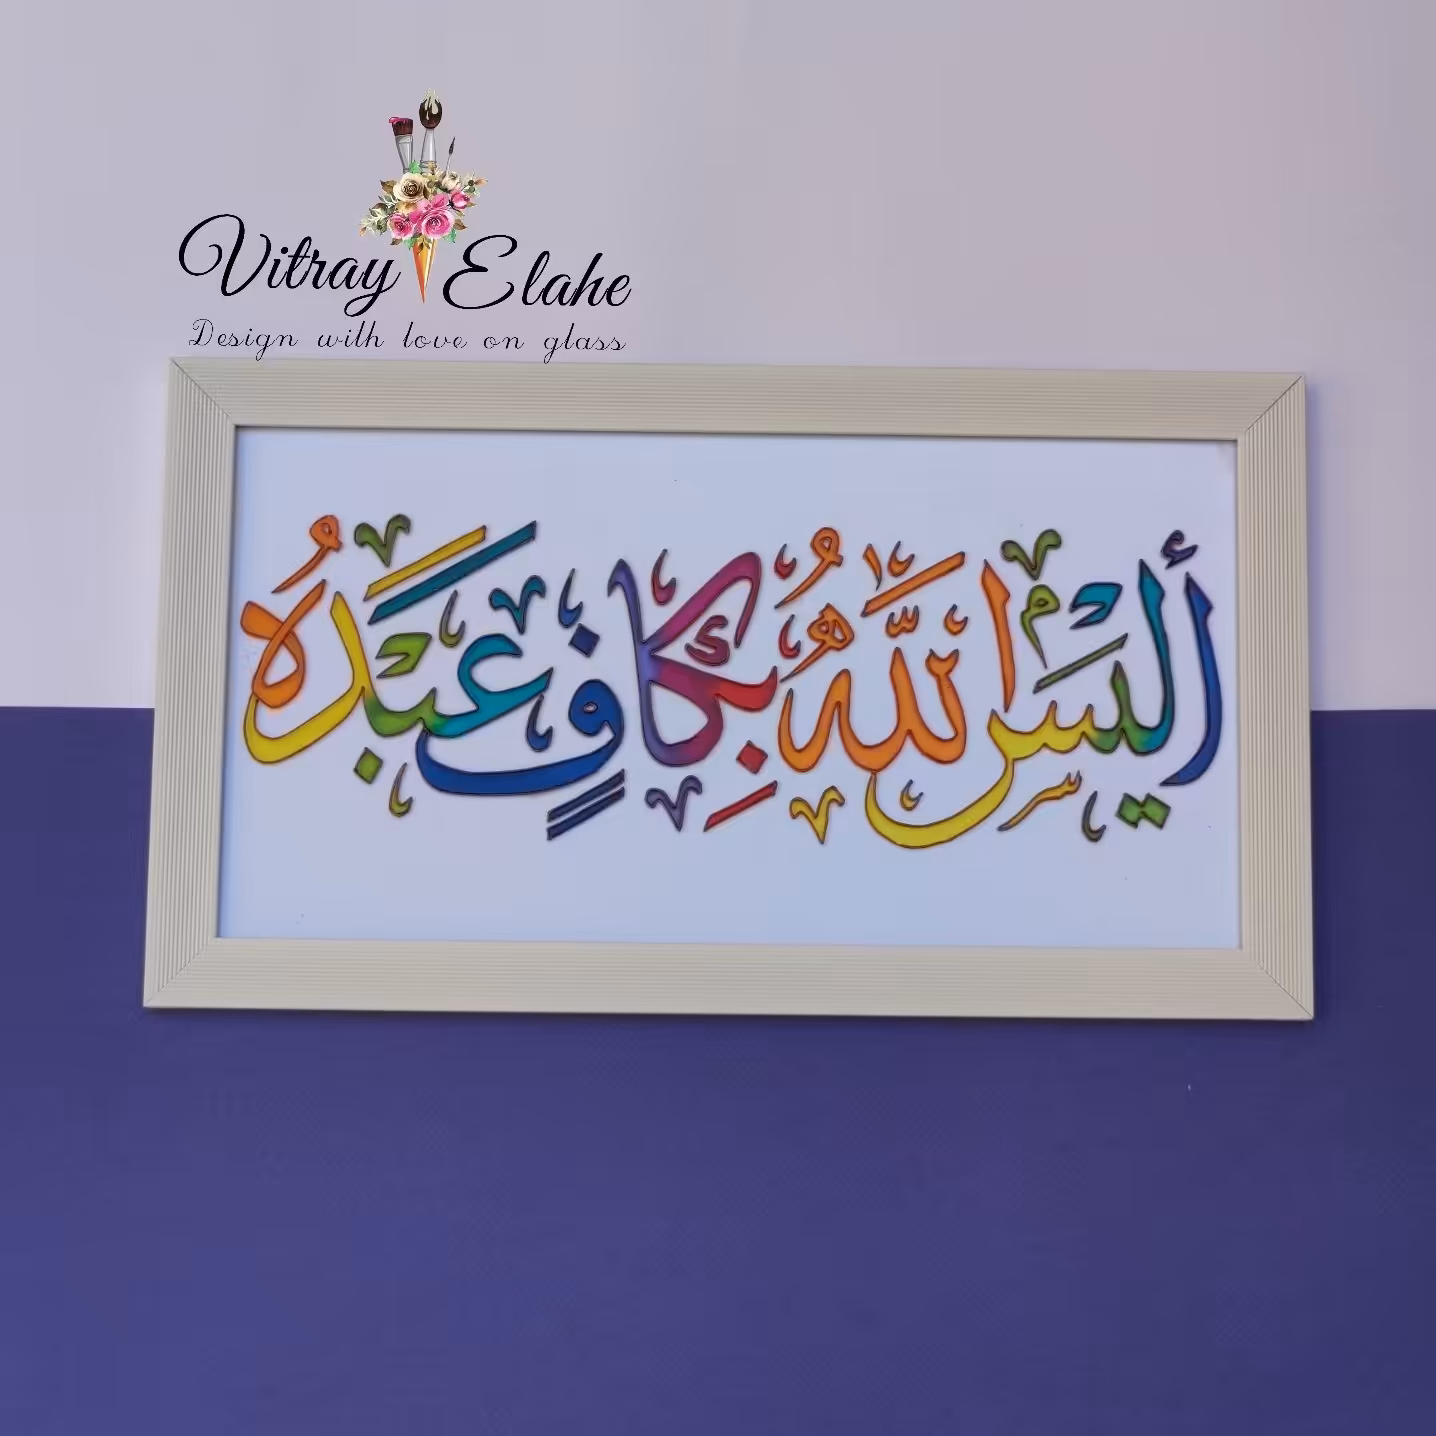 Vitray Elahe
Design with love on glass
أَلَيْسَ اللَّهُ بِكَافٍ عَبْدَهُ